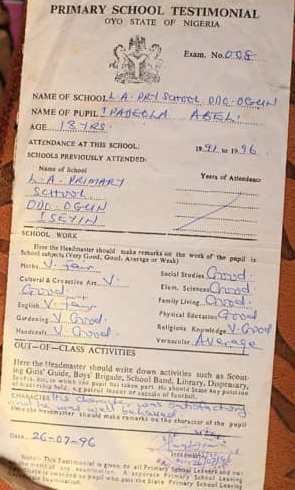 PRIMARY SCHOOL TESTIMONIAL
OYO STATE OF NIGERIA
Exam. No. 008
NAME OF SCHOOL L.A. PRY SCHOOL ODO-OGUN
NAME OF PUPIL IPADEOLA ABEL
AGE 13 YRS
ATTENDANCE AT THIS SCHOOL: 1991 to 1996
SCHOOLS PREVIOUSLY ATTENDED:
Name of School Years of Attendance
L.A. PRIMARY
SCHOOL
ODO-OGUN
ISEYIN
SCHOOL WORK
Here the Headmaster should make remarks on the work of the pupil in
School subjects (Very Good, Good, Average or Weak)
Maths V. fair Social Studies Good
Cultural & Creative Art V. Elem. Sciences Good
Good Family Living Good
English V. fair Physical Education Good
Gardening V. Good Religious Knowledge V. Good
Handcraft V. Good Vernacular Average
OUT-OF-CLASS ACTIVITIES
Here the Headmaster should write down activities such as Scout-
ing Girls' Guide, Boys' Brigade, School Band, Library, Dispensary,
in which the pupil has taken part. He should State any position
of leadership held, e.g. patrol leader or captain of football.
CHARACTER
Here the Headmaster should make remarks on the character of the pupil
Date 26-07-96
Note: This Testimonial is given to all Primary School Leavers and not